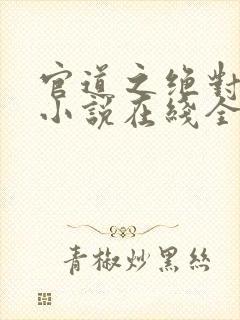 官道之绝對
小說在綫全
青椒炒黑絲